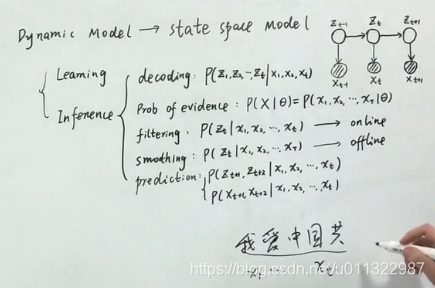 Dynamic Model → state space model
Z_{t-1} Z_t Z_{t+1}
x_{t-1} x_t x_{t+1}
Learning
Inference
decoding: P(Z_1, Z_2, ⋯ Z_t | x_1, x_2, x_t)
Prob of evidence: P(X|θ) = P(x_1, x_2, ⋯, x_T | θ)
filtering: P(Z_t | x_1, x_2, ⋯, x_t) → online
smothing: P(Z_t | x_1, x_2, ⋯, x_T) → offline
prediction: P(Z_{t+1}, Z_{t+2} | x_1, x_2, ⋯, x_t)
P(x_{t+1}, x_{t+2} | x_1, x_2, ⋯, x_t)
我爱中国共
x_1 x_t
https://blog.csdn.net/u011322987